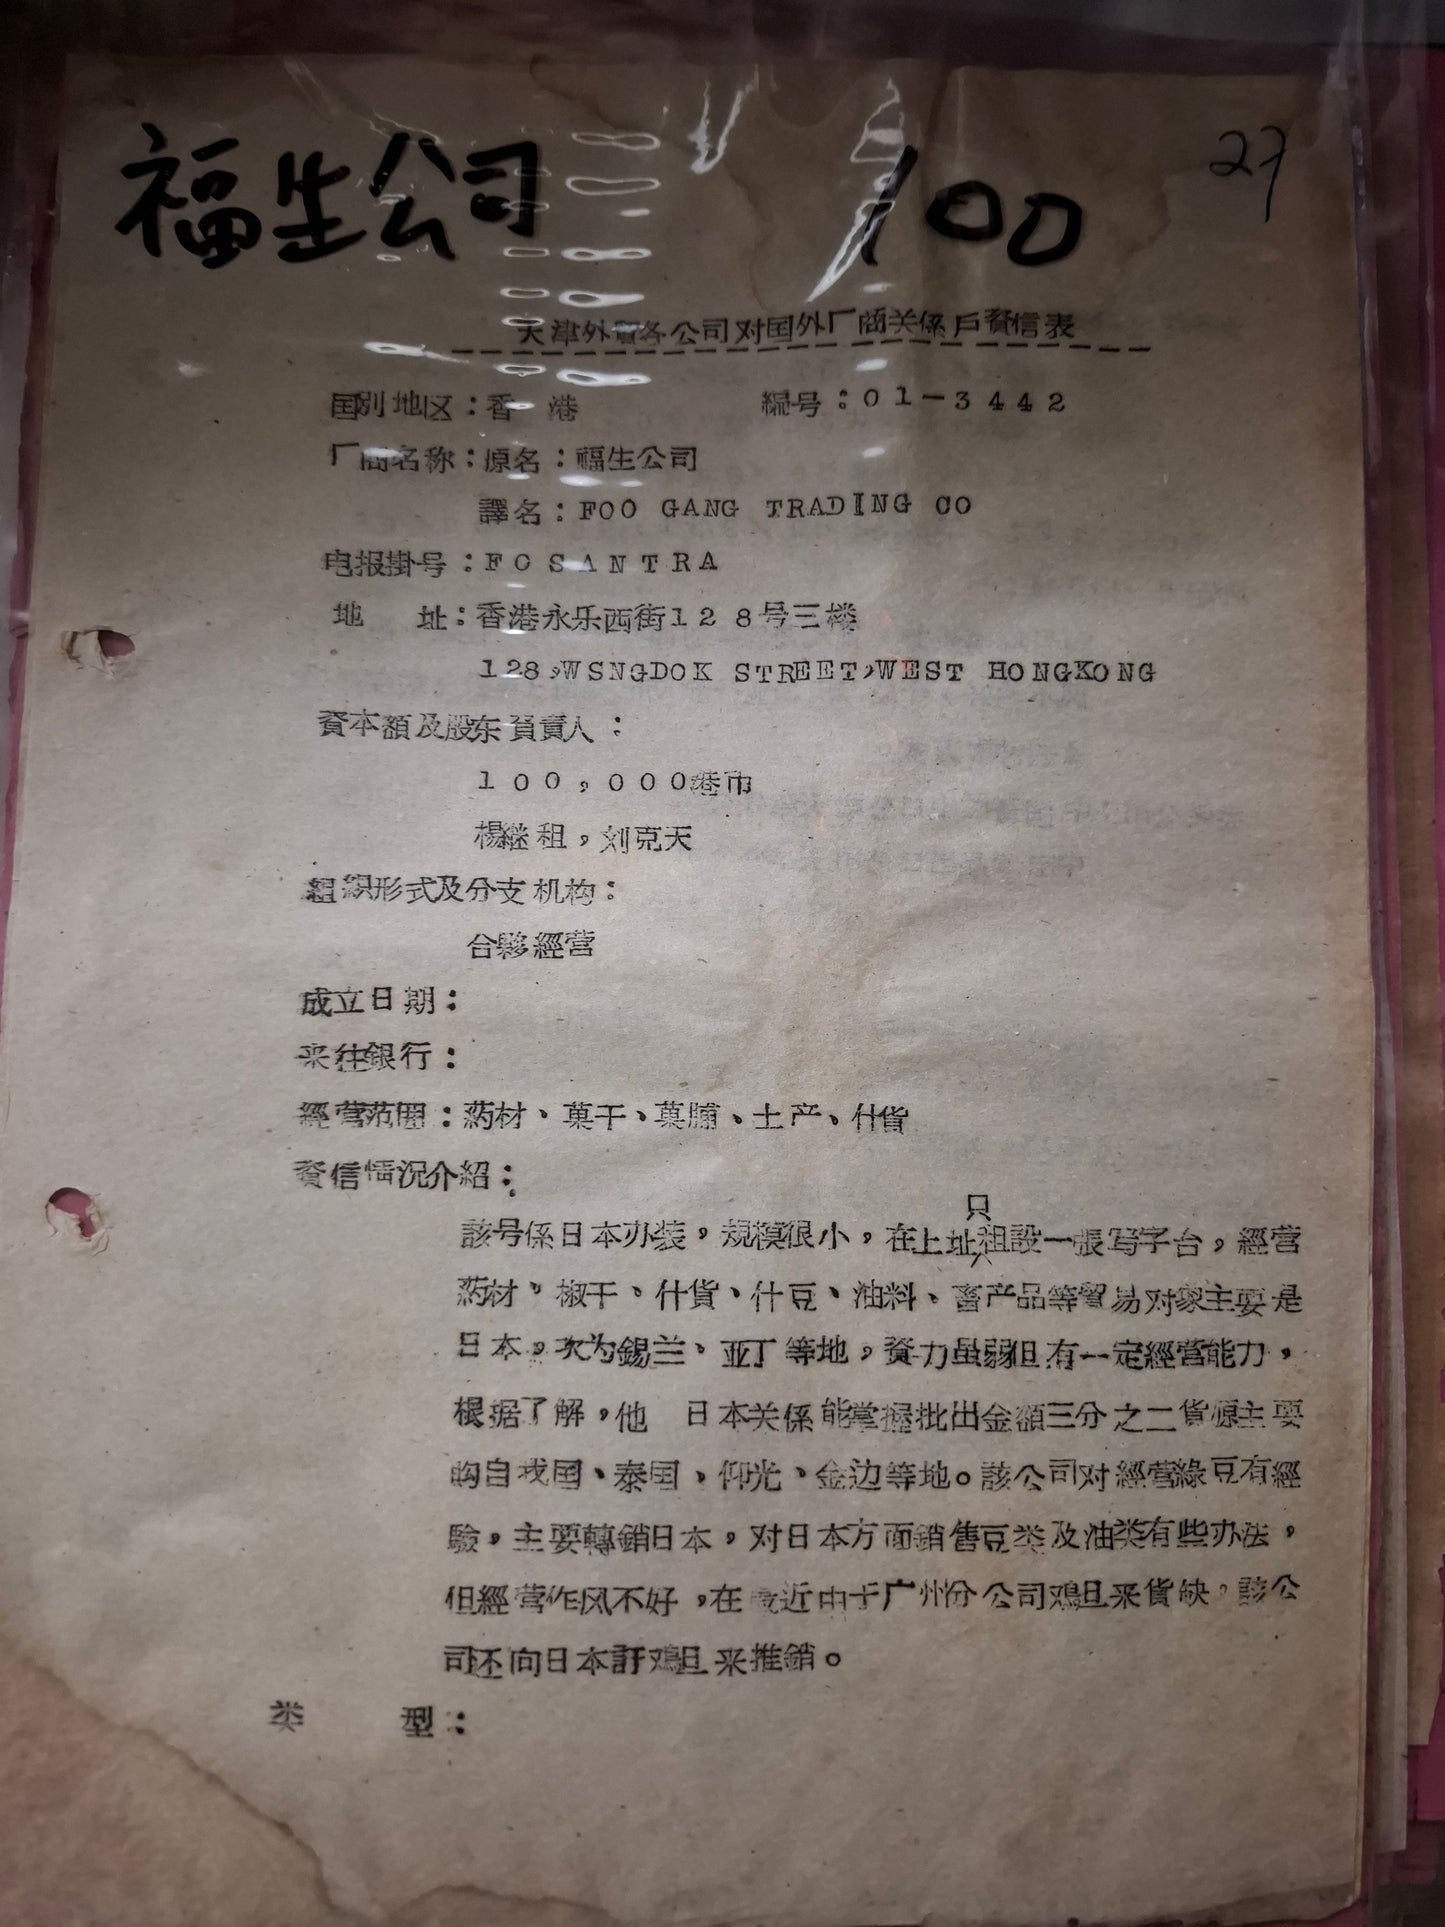 福生公司 100 27
天津外貿各公司对国外厂商关係戶資信表
国別地区：香 港 編号：01-3442
厂商名称：原名：福生公司
譯名：FOO GANG TRADING CO
电报掛号：FOSANTRA
地 址：香港永乐西街128号三楼
128,WSNGDOK STREET,WEST HONGKONG
資本額及股东負責人：
100,000港币
楊継租，刘克天
組織形式及分支机构：
合夥經营
成立日期：
来往銀行：
經营范囲：葯材、菓干、菓脯、土产、什貨
資信情况介紹：
只
該号係日本办装，規模很小，在上址租設一張写字台，經营
葯材，椒干、什貨、什豆、油料、畜产品等貿易对象主要是
日本，次为錫兰、亚丁等地，資力虽弱但有一定經营能力，
根据了解，他 日本关係能掌握批出金額三分之二貨源主要
的自我国、泰国、仰光、金边等地。該公司对經营綠豆有經
驗，主要轉銷日本，对日本方面銷售豆类及油类有些办法，
但經营作风不好，在最近由于广州分公司鸡旦来貨缺，該公
司还向日本訂鸡旦来推銷。
类 型：